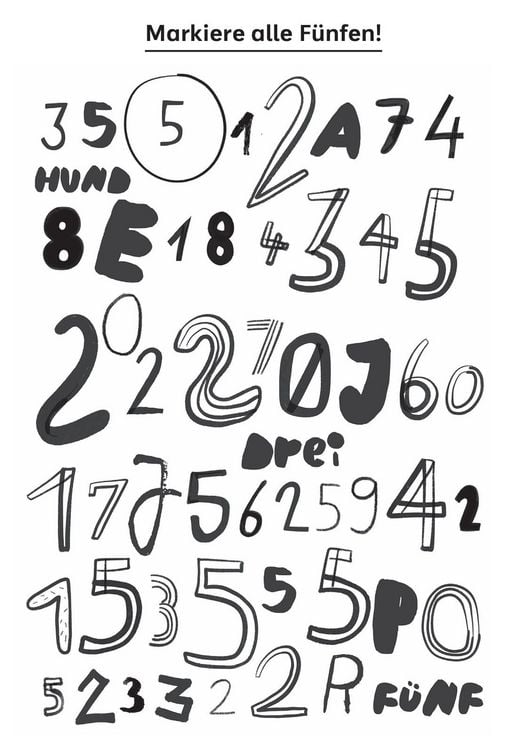 Markiere alle Fünfen!
3 5 5 1 2 A 7 4
HUND
8 E 1 8 4 3 4 5
2 0 2 2 7 0 J 6 0
DREi
1 7 J 5 6 2 5 9 4 2
1 5 3 5 5 5 P O
5 2 3 3 2 2 R FÜNF